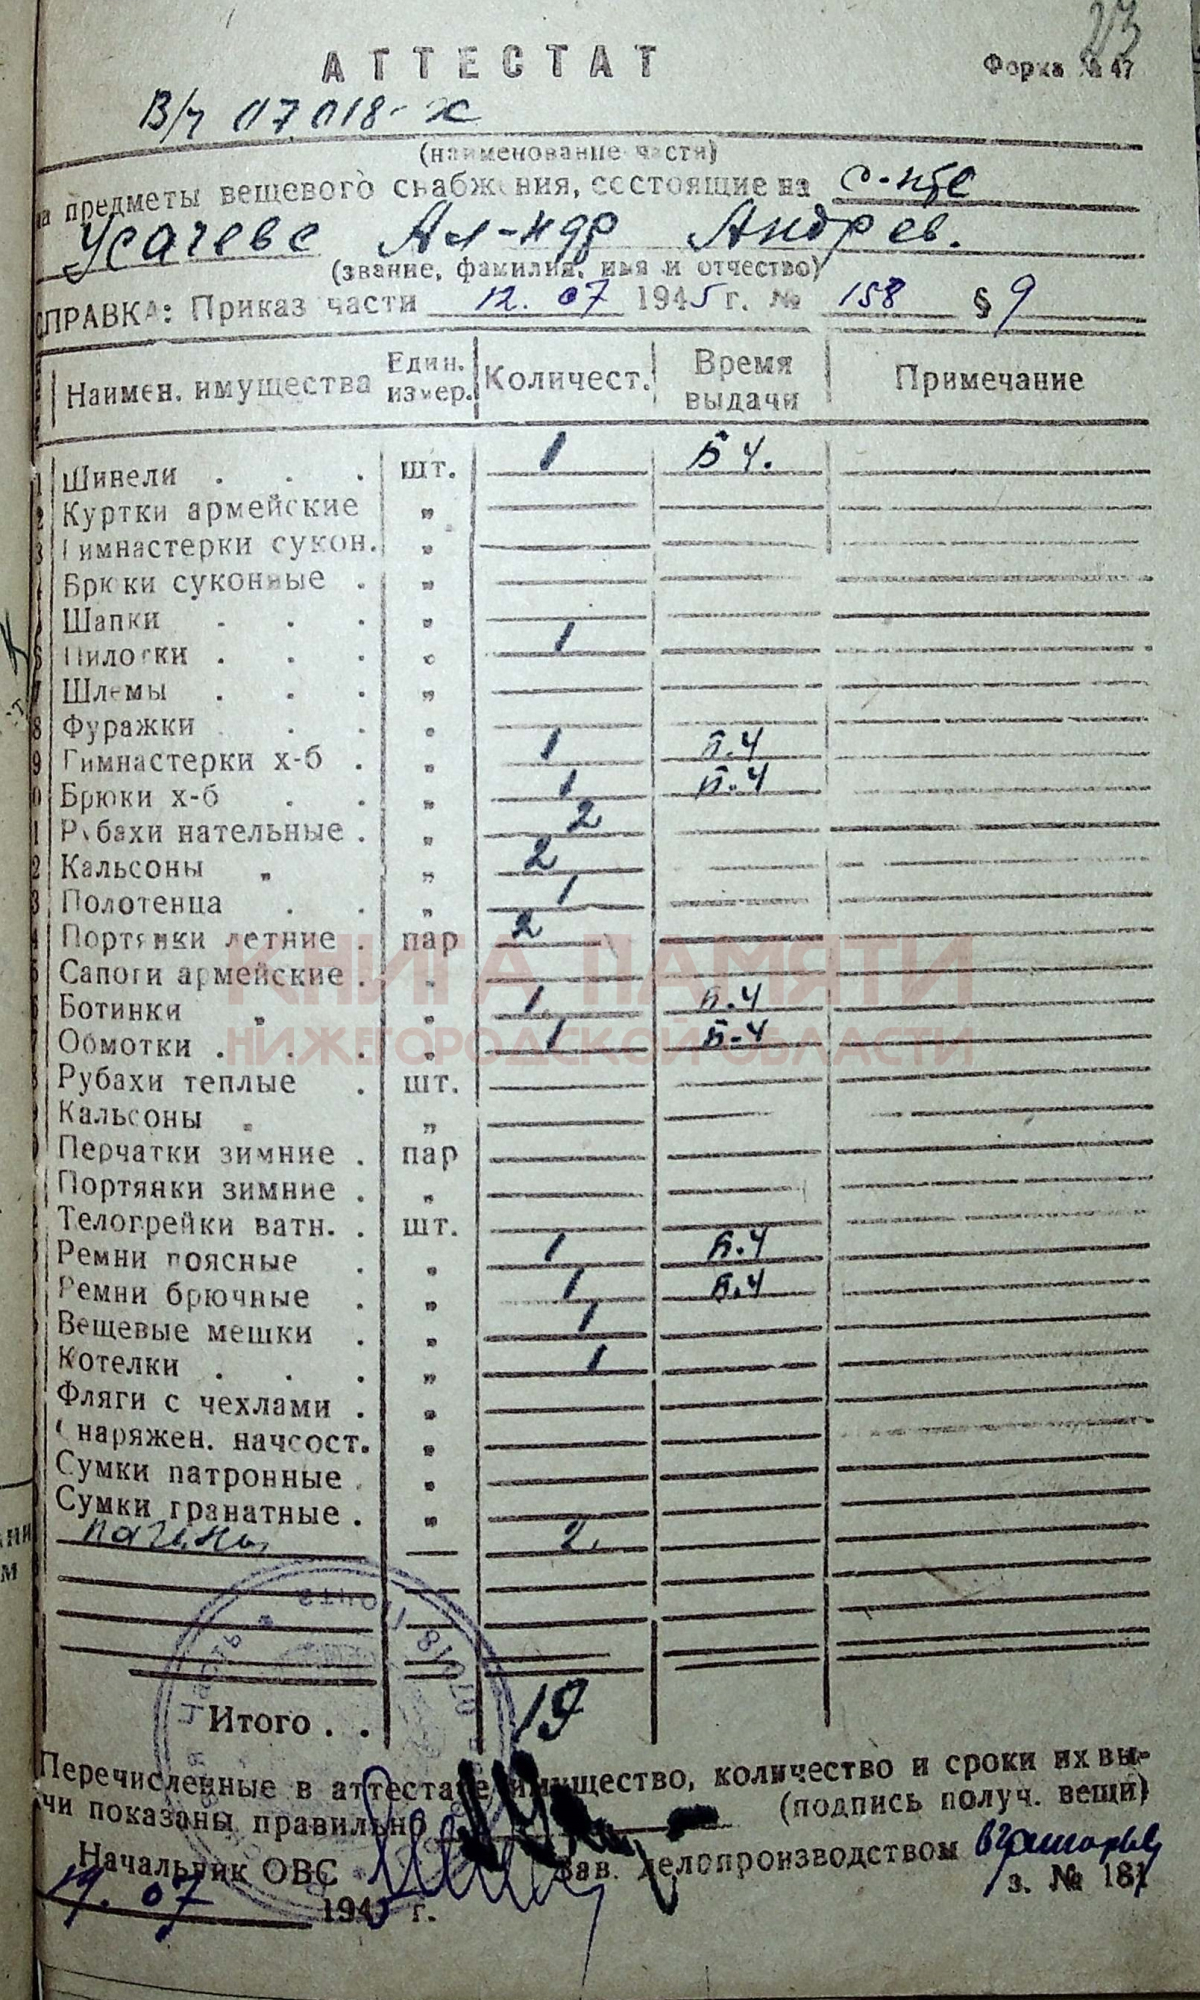 23
АТТЕСТАТ
Форма № 47
В/ч 07018-Х
(наименование части)
на предметы вещевого снабжения, состоящие на с-нте
Усачеве Ал-ндр Андрев.
(звание, фамилия, имя и отчество)
СПРАВКА: Приказ части 12.07 1945 г. № 158 § 9
Наимен. имущества Един. измер. Количест. Время выдачи Примечание
1 Шинели . . . шт. 1 Б ч.
2 Куртки армейские "
3 Гимнастерки сукон. "
Брюки суконные . "
Шапки . . . "
6 Пилотки . . . " 1
7 Шлемы . . . "
8 Фуражки . . "
9 Гимнастерки х-б . " 1 Б.ч
0 Брюки х-б . . " 1 Б.ч
1 Рубахи нательные . " 2
2 Кальсоны " " 2
3 Полотенца . . " 1
4 Портянки летние . пар 2
5 Сапоги армейские . "
6 Ботинки " " 1 Б.ч
7 Обмотки . . . " 1 Б-ч
8 Рубахи теплые . шт.
9 Кальсоны " "
0 Перчатки зимние . пар
Портянки зимние . "
2 Телогрейки ватн. . шт.
3 Ремни поясные . " 1 Б.ч
Ремни брючные . " 1 Б.ч
Вещевые мешки . " 1
Котелки . . . " 1
Фляги с чехлами . "
Снаряжен. начсост. "
Сумки патронные . "
Сумки гранатные . "
погены 2.
Итого . . 19
Перечисленные в аттестате имущество, количество и сроки их вы-
чи показаны правильно (подпись получ. вещи)
Начальник ОВС Зав. делопроизводством
19.07 1945 г. з. № 181
КНИГА ПАМЯТИ
НИЖЕГОРОДСКОЙ ОБЛАСТИ